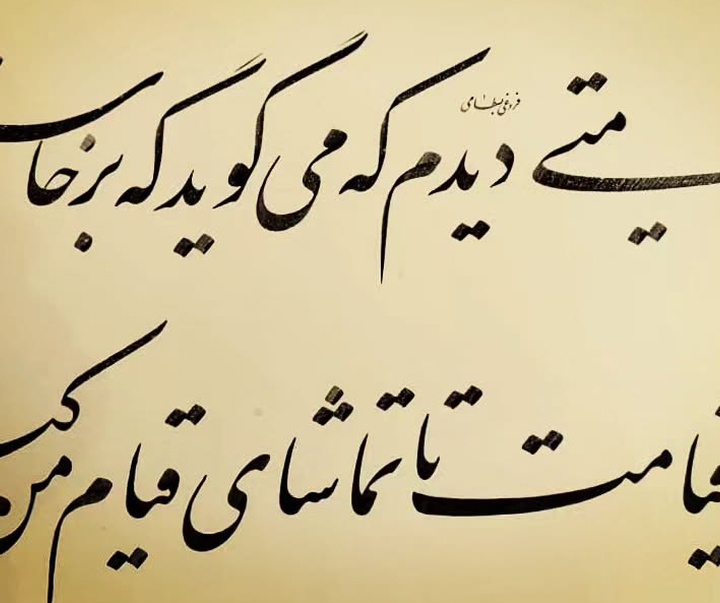 متی دیدم که می گوید که برخاس
فروغی بسطامی
قیامت تا تماشای قیام من کـ